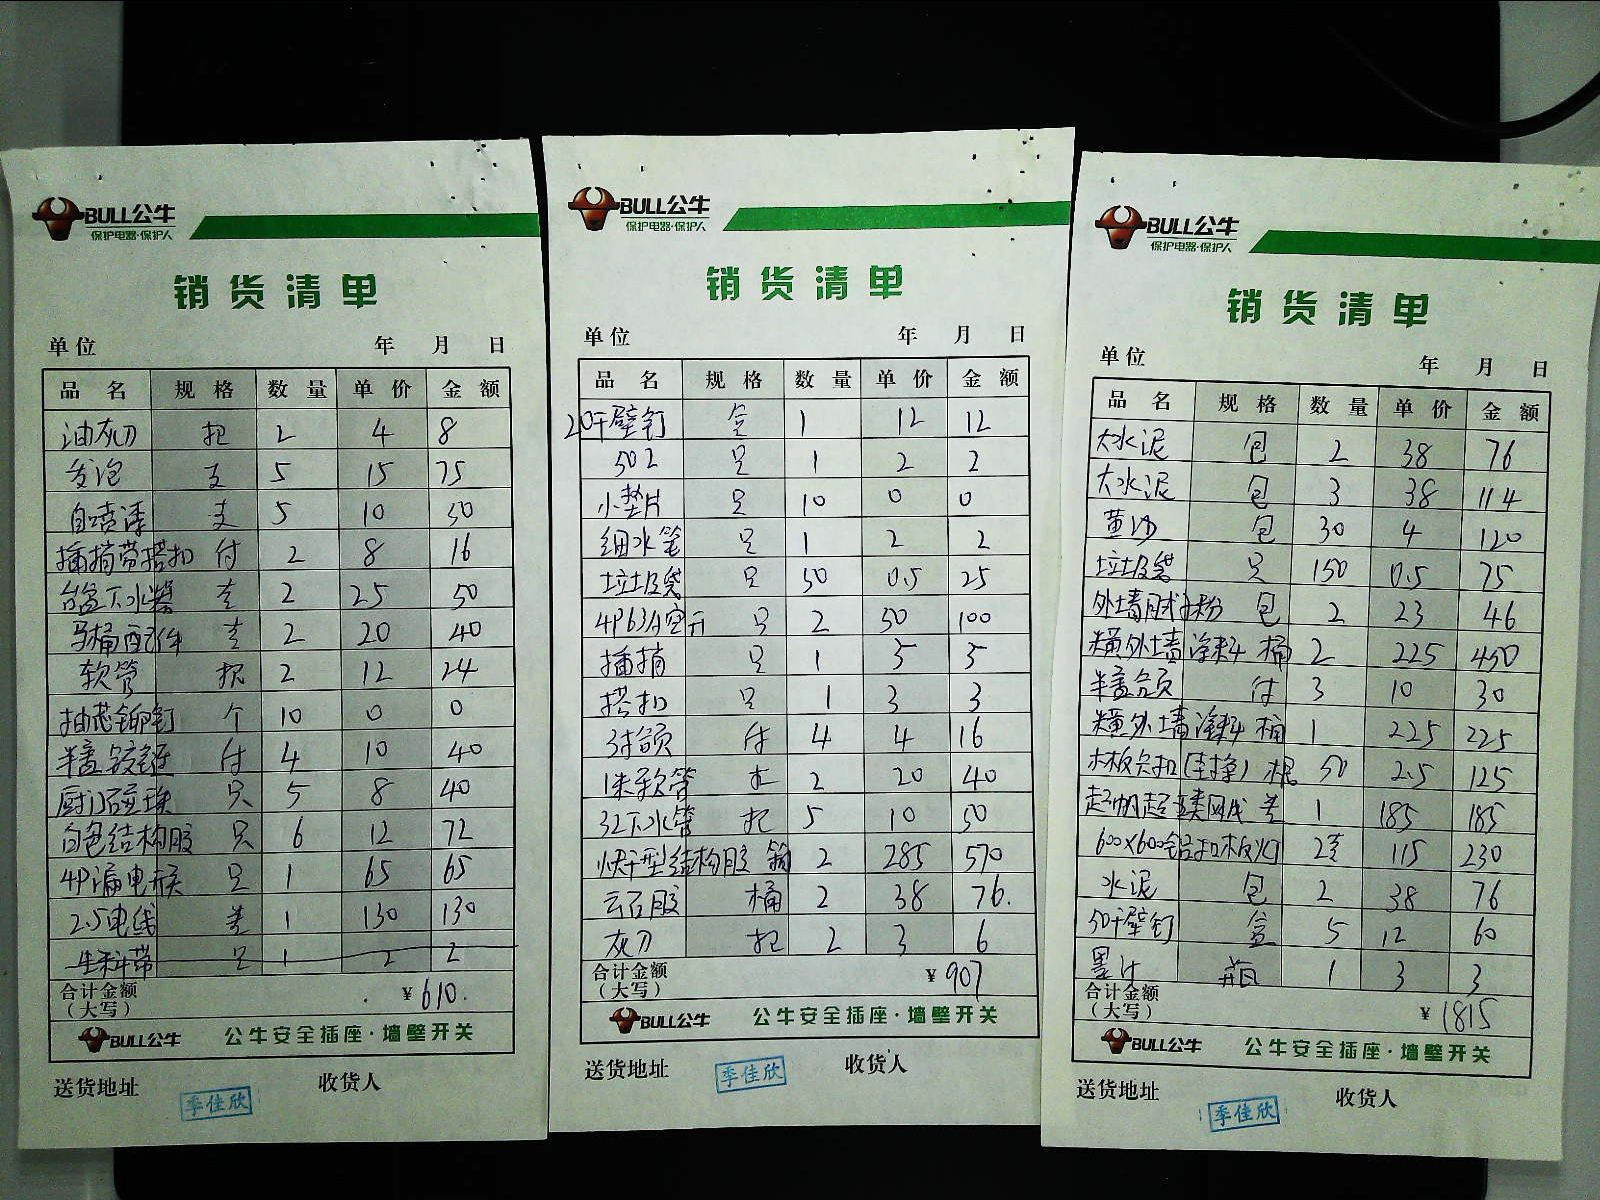 BULL公牛
保护电器·保护人
销货清单
单位 年 月 日
品名 规格 数量 单价 金额
油灰刀 把 2 4 8
发泡 支 5 15 75
自喷漆 支 5 10 50
插捎带搭扣 付 2 8 16
台盆下水 2 25 50
马桶配件 2 20 40
软管 根 2 12 24
抽芯铆钉 个 10 0 0
半盖铰链 付 4 10 40
厨门碰珠 只 5 8 40
白色结构胶 只 6 12 72
4P漏电开关 只 1 65 65
2.5电线 卷 1 130 130
生料带 只 1 2 2
合计金额
(大写) ¥610.
BULL公牛 公牛安全插座·墙壁开关
送货地址 收货人
季佳欣
BULL公牛
保护电器·保护人
销货清单
单位 年 月 日
品名 规格 数量 单价 金额
20干壁钉 盒 1 12 12
502 只 1 2 2
小垫片 只 10 0 0
细水笔 只 1 2 2
垃圾袋 只 50 0.5 25
4P63A空开 只 2 50 100
插捎 只 1 5 5
搭扣 只 1 3 3
付 4 4 16
1米软管 2 20 40
32下水管 把 5 10 50
快干型结构胶 箱 2 285 570
云石胶 桶 2 38 76.
灰刀 把 2 3 6
合计金额
(大写) ¥907
BULL公牛 公牛安全插座·墙壁开关
送货地址 收货人
季佳欣
BULL公牛
保护电器·保护人
销货清单
单位 年 月 日
品名 规格 数量 单价 金额
大水泥 包 2 38 76
大水泥 包 3 38 114
黄沙 包 30 4 120
垃圾袋 只 150 0.5 75
外墙腻子粉 包 2 23 46
外墙涂料 桶 2 225 450
半盖 付 3 10 30
外墙涂料 桶 1 225 225
木板 根 50 2.5 125
超五类网线 卷 1 185 185
600X600铝扣板灯 2套 115 230
水泥 包 2 38 76
50干壁钉 盒 5 12 60
墨汁 瓶 1 3 3
合计金额
(大写) ¥1815
BULL公牛 公牛安全插座·墙壁开关
送货地址 收货人
季佳欣